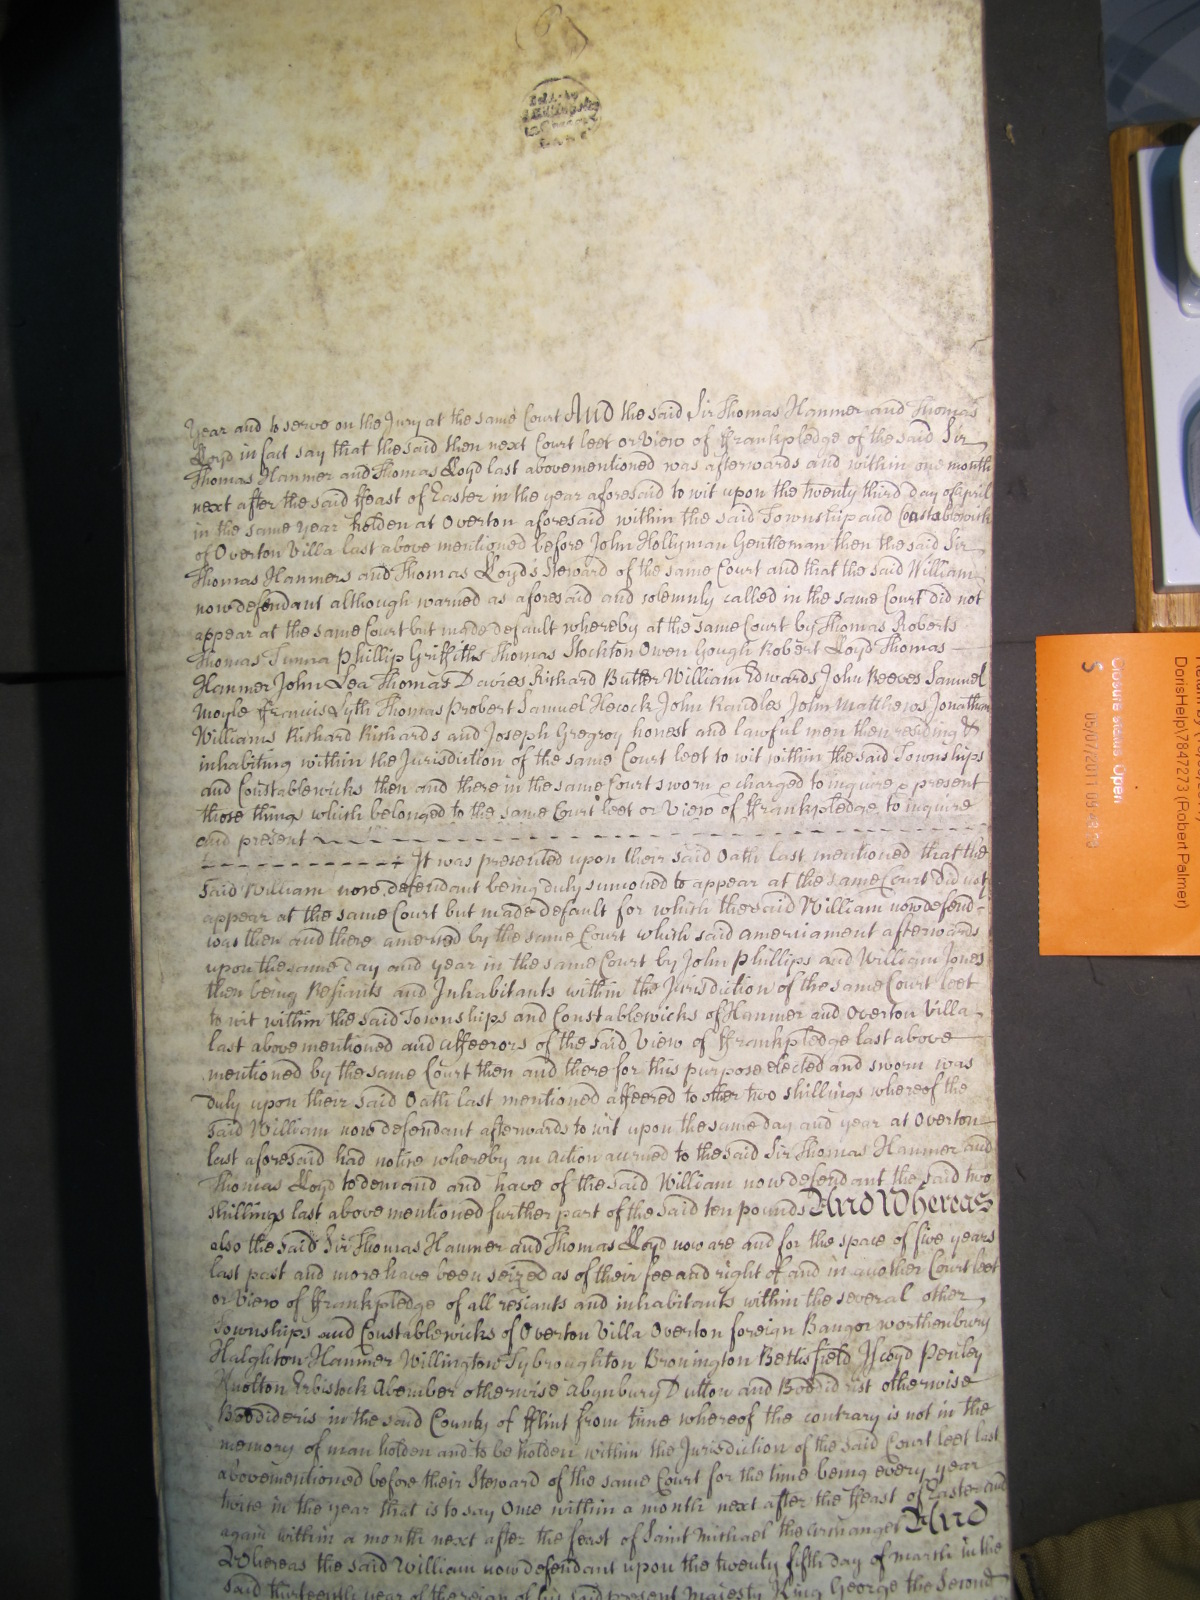 Year and to serve on the Jury at the same Court And the said Sir Thomas Hanmer and Thomas
Lloyd in fact say that the said then next Court leet or View of ffrankpledge of the said Sir
Thomas Hanmer and Thomas Lloyd last abovementioned was afterwards and within one month
next after the said ffeast of Easter in the year aforesaid to wit upon the twenty third day of April
in the same year holden at Overton aforesaid within the said Township and Constablewick
of Overton Villa last above mentioned before John Hollyman Gentleman then the said Sir
Thomas Hanmers and Thomas Lloyds Steward of the same Court and that the said William
now defendant although warned as aforesaid and solemnly called in the same Court did not
appear at the same Court but made default whereby at the same Court by Thomas Roberts
Thomas Phillip Griffiths Thomas Stockton Owen Gough Robert Lloyd Thomas
Hanmer John Lea Thomas Davies Richard Butter William Edwards John Reeves Samuel
Moyle ffrancis Lyth Thomas Probert Samuel Hecock John Randles John Matthews Jonathan
Williams Richard Richards and Joseph Gregroy honest and lawful men then residing &
inhabiting within the Jurisdiction of the same Court leet to wit within the said Townships
and Constablewicks then and there in the same Court sworn & charged to inquire & present
those things which belonged to the same Court leet or View of ffrankpledge to inquire
and present
It was presented upon their said Oath last mentioned that the
said William now defendant being duly sumoned to appear at the same Court did not
appear at the same Court but made default for which the said William now defend
was then and there amerced by the same Court which said amerciament afterwards
upon the same day and year in the same Court by John Phillips and William Jones
then being Resiants and Inhabitants within the Jurisdiction of the same Court leet
to wit within the said Townships and Constablewicks of Hanmer and Overton Villa
last above mentioned and affeerors of the said View of ffrankpledge last above
mentioned by the same Court then and there for this purpose elected and sworn was
duly upon their said Oath last mentioned affeered to other two shillings whereof the
said William now defendant afterwards to wit upon the same day and year at Overton
last aforesaid had notice whereby an Action accrued to the said Sir Thomas Hanmer and
Thomas Lloyd to demand and have of the said William now defendant the said two
shillings last above mentioned further part of the said ten pounds And Whereas
also the said Sir Thomas Hanmer and Thomas Lloyd now are and for the space of five years
last past and more have been seized as of their fee and right of and in another Court leet
or View of ffrankpledge of all resiants and inhabitants within the several other
Townships and Constablewicks of Overton Villa Overton foreign Bangor Worthenbury
Halghton Hanmer Willington Tybroughton Bronington Bettisfield Iscoyd Penley
Knolton Erbistock Abember otherwise Abynbury Dutton and Boddidrist otherwise
Boddideris in the said County of fflint from time whereof the contrary is not in the
memory of man holden and to be holden within the Jurisdiction of the said Court leet last
abovementioned before their Steward of the same Court for the time being every year
twice in the year that is to say Once within a month next after the ffeast of Easter and
again within a month next after the feast of Saint Michael the Archangel And
Whereas the said William now defendant upon the twenty fifth day of March in the
said thirteenth year of the reign of his said present Majesty King George the Second
Closure status: Open
5
05/07/2011 09:
DorisHelp\7847273 (Robert Palmer)